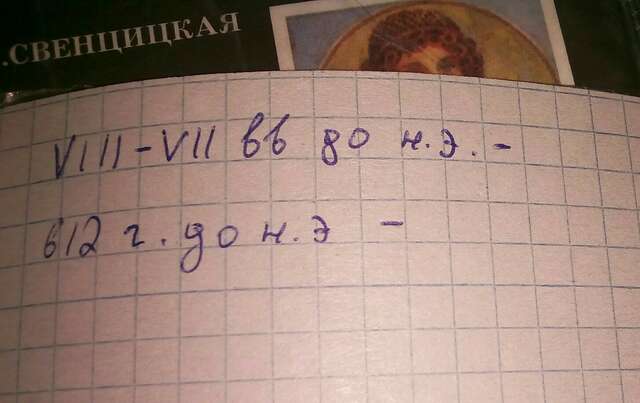 .СВЕНЦИЦКАЯ
VIII-VII вв до н.э. -
612 г. до н.э -